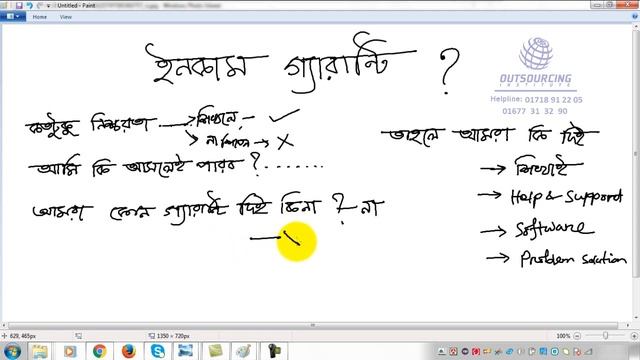 Untitled - Paint
File Home View
ইনকাম গ্যারান্টি ?
OUTSOURCING
INSTITUTE
Helpline: 01718 91 22 05
01677 31 32 90
কতটুকু নিশ্চয়তা → শিখলে - ✓
→ না শিখলে → ✗
আমি কি আসলেই পারব ? .......
আমরা কোন গ্যারান্টি দিই কিনা ? না
তাহলে আমরা কি দিই
→ শিখাই
→ Help & Support
→ Software
→ Problem Solution
629, 465px
1350 × 720px
100%